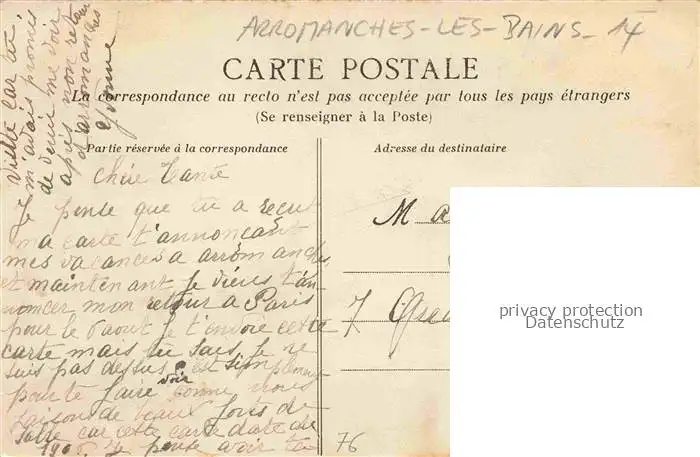 ARROMANCHES-LES-BAINS_ 14
CARTE POSTALE
La correspondance au recto n'est pas acceptée par tous les pays étrangers
(Se renseigner à la Poste)
Partie réservée à la correspondance
Adresse du destinataire
chère Tante
Je pense que tu a reçut
ma carte t'annonçant
mes vacances a arromanches
et maintenant je viens t'an-
noncer mon retour a Paris
pour le 6 aout Je t'envoie cette
carte mais tu sais je ne
suis pas dessus c'est simplement
pour te faire voir comme nous
faison de beaux forts de
sable car cette carte date de
1906. Je pense avoir ta
visite car tu
m'avais promis
de venir me voir
après mon retour
d'arromanches
Yvonne
M
7
76
privacy protection
Datenschutz